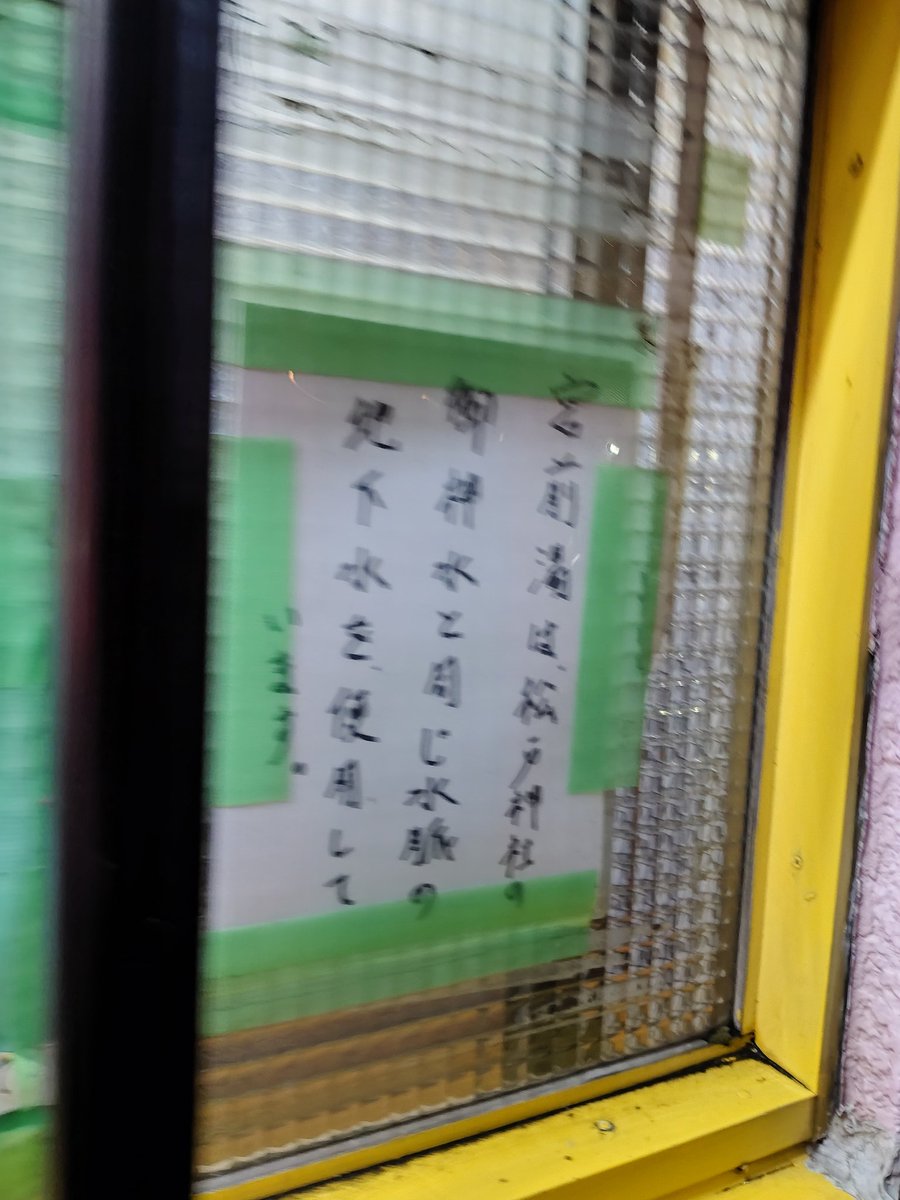 宮前湯は、松戸神社の
御神水と同じ水脈の
地下水を、使用して
います。